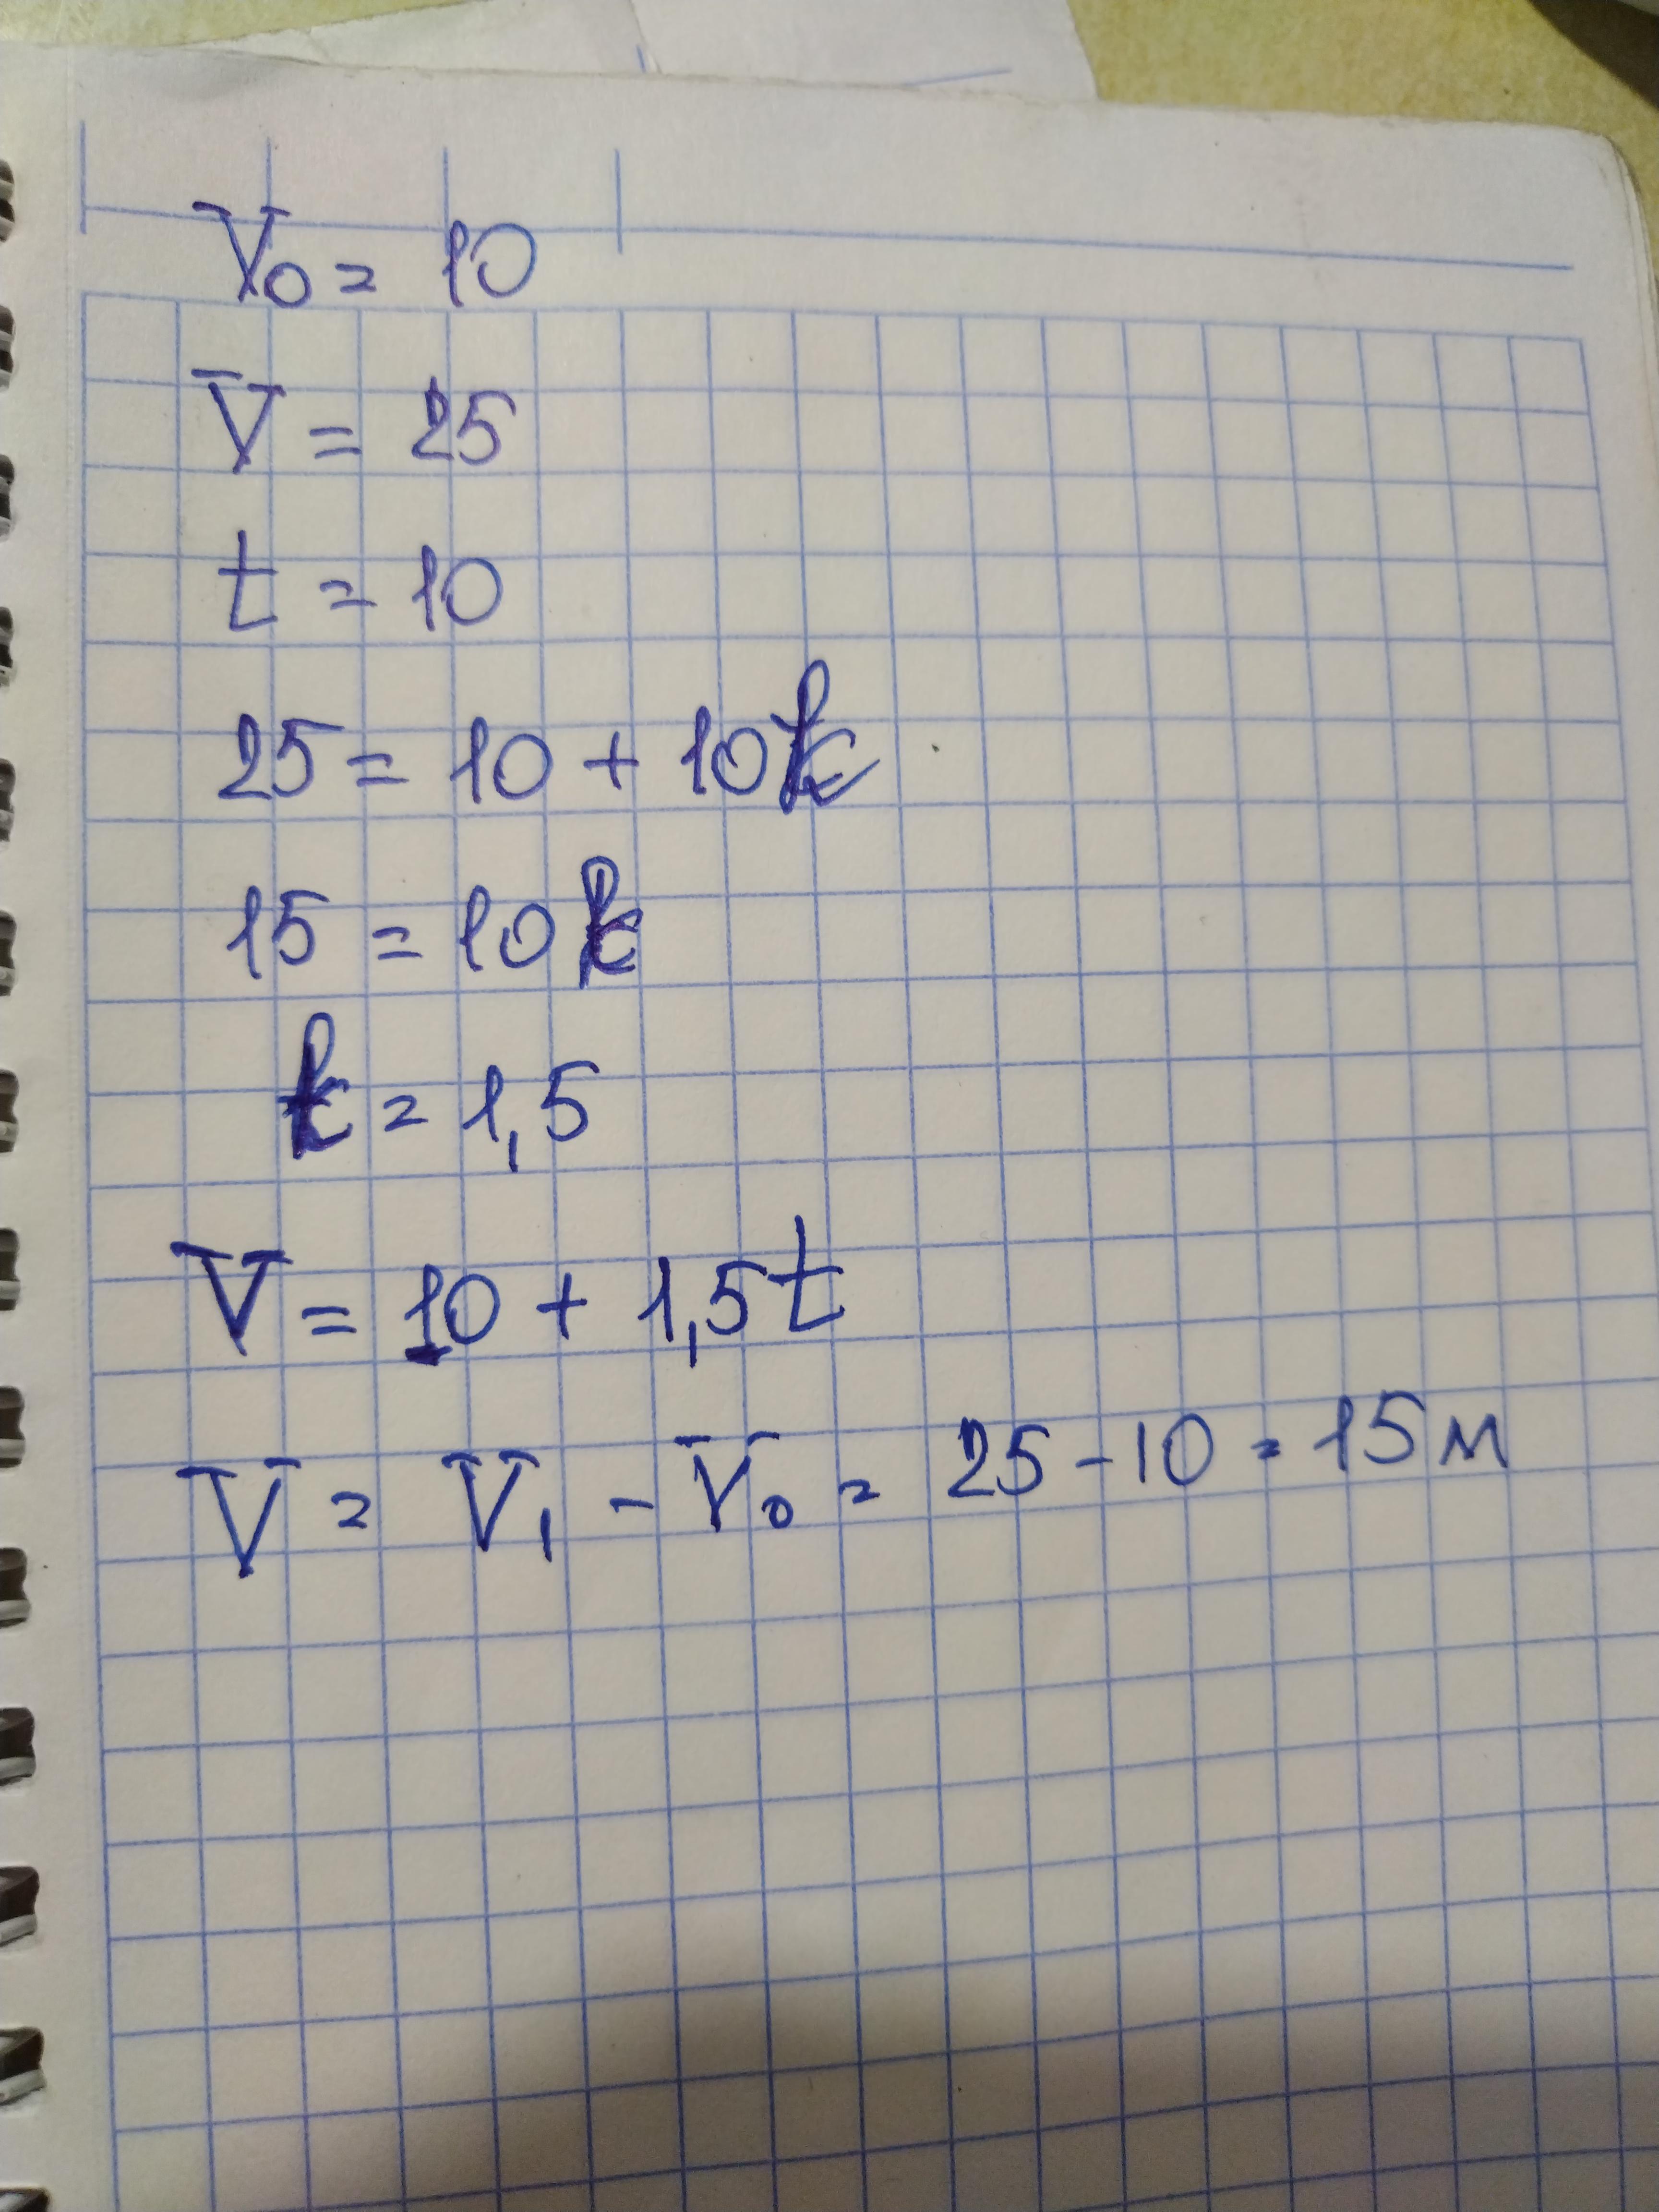 V₀ = 10
V = 25
t = 10
25 = 10 + 10k
15 = 10k
k = 1,5
V = 10 + 1,5t
V = V₁ - V₀ = 25 - 10 = 15 м